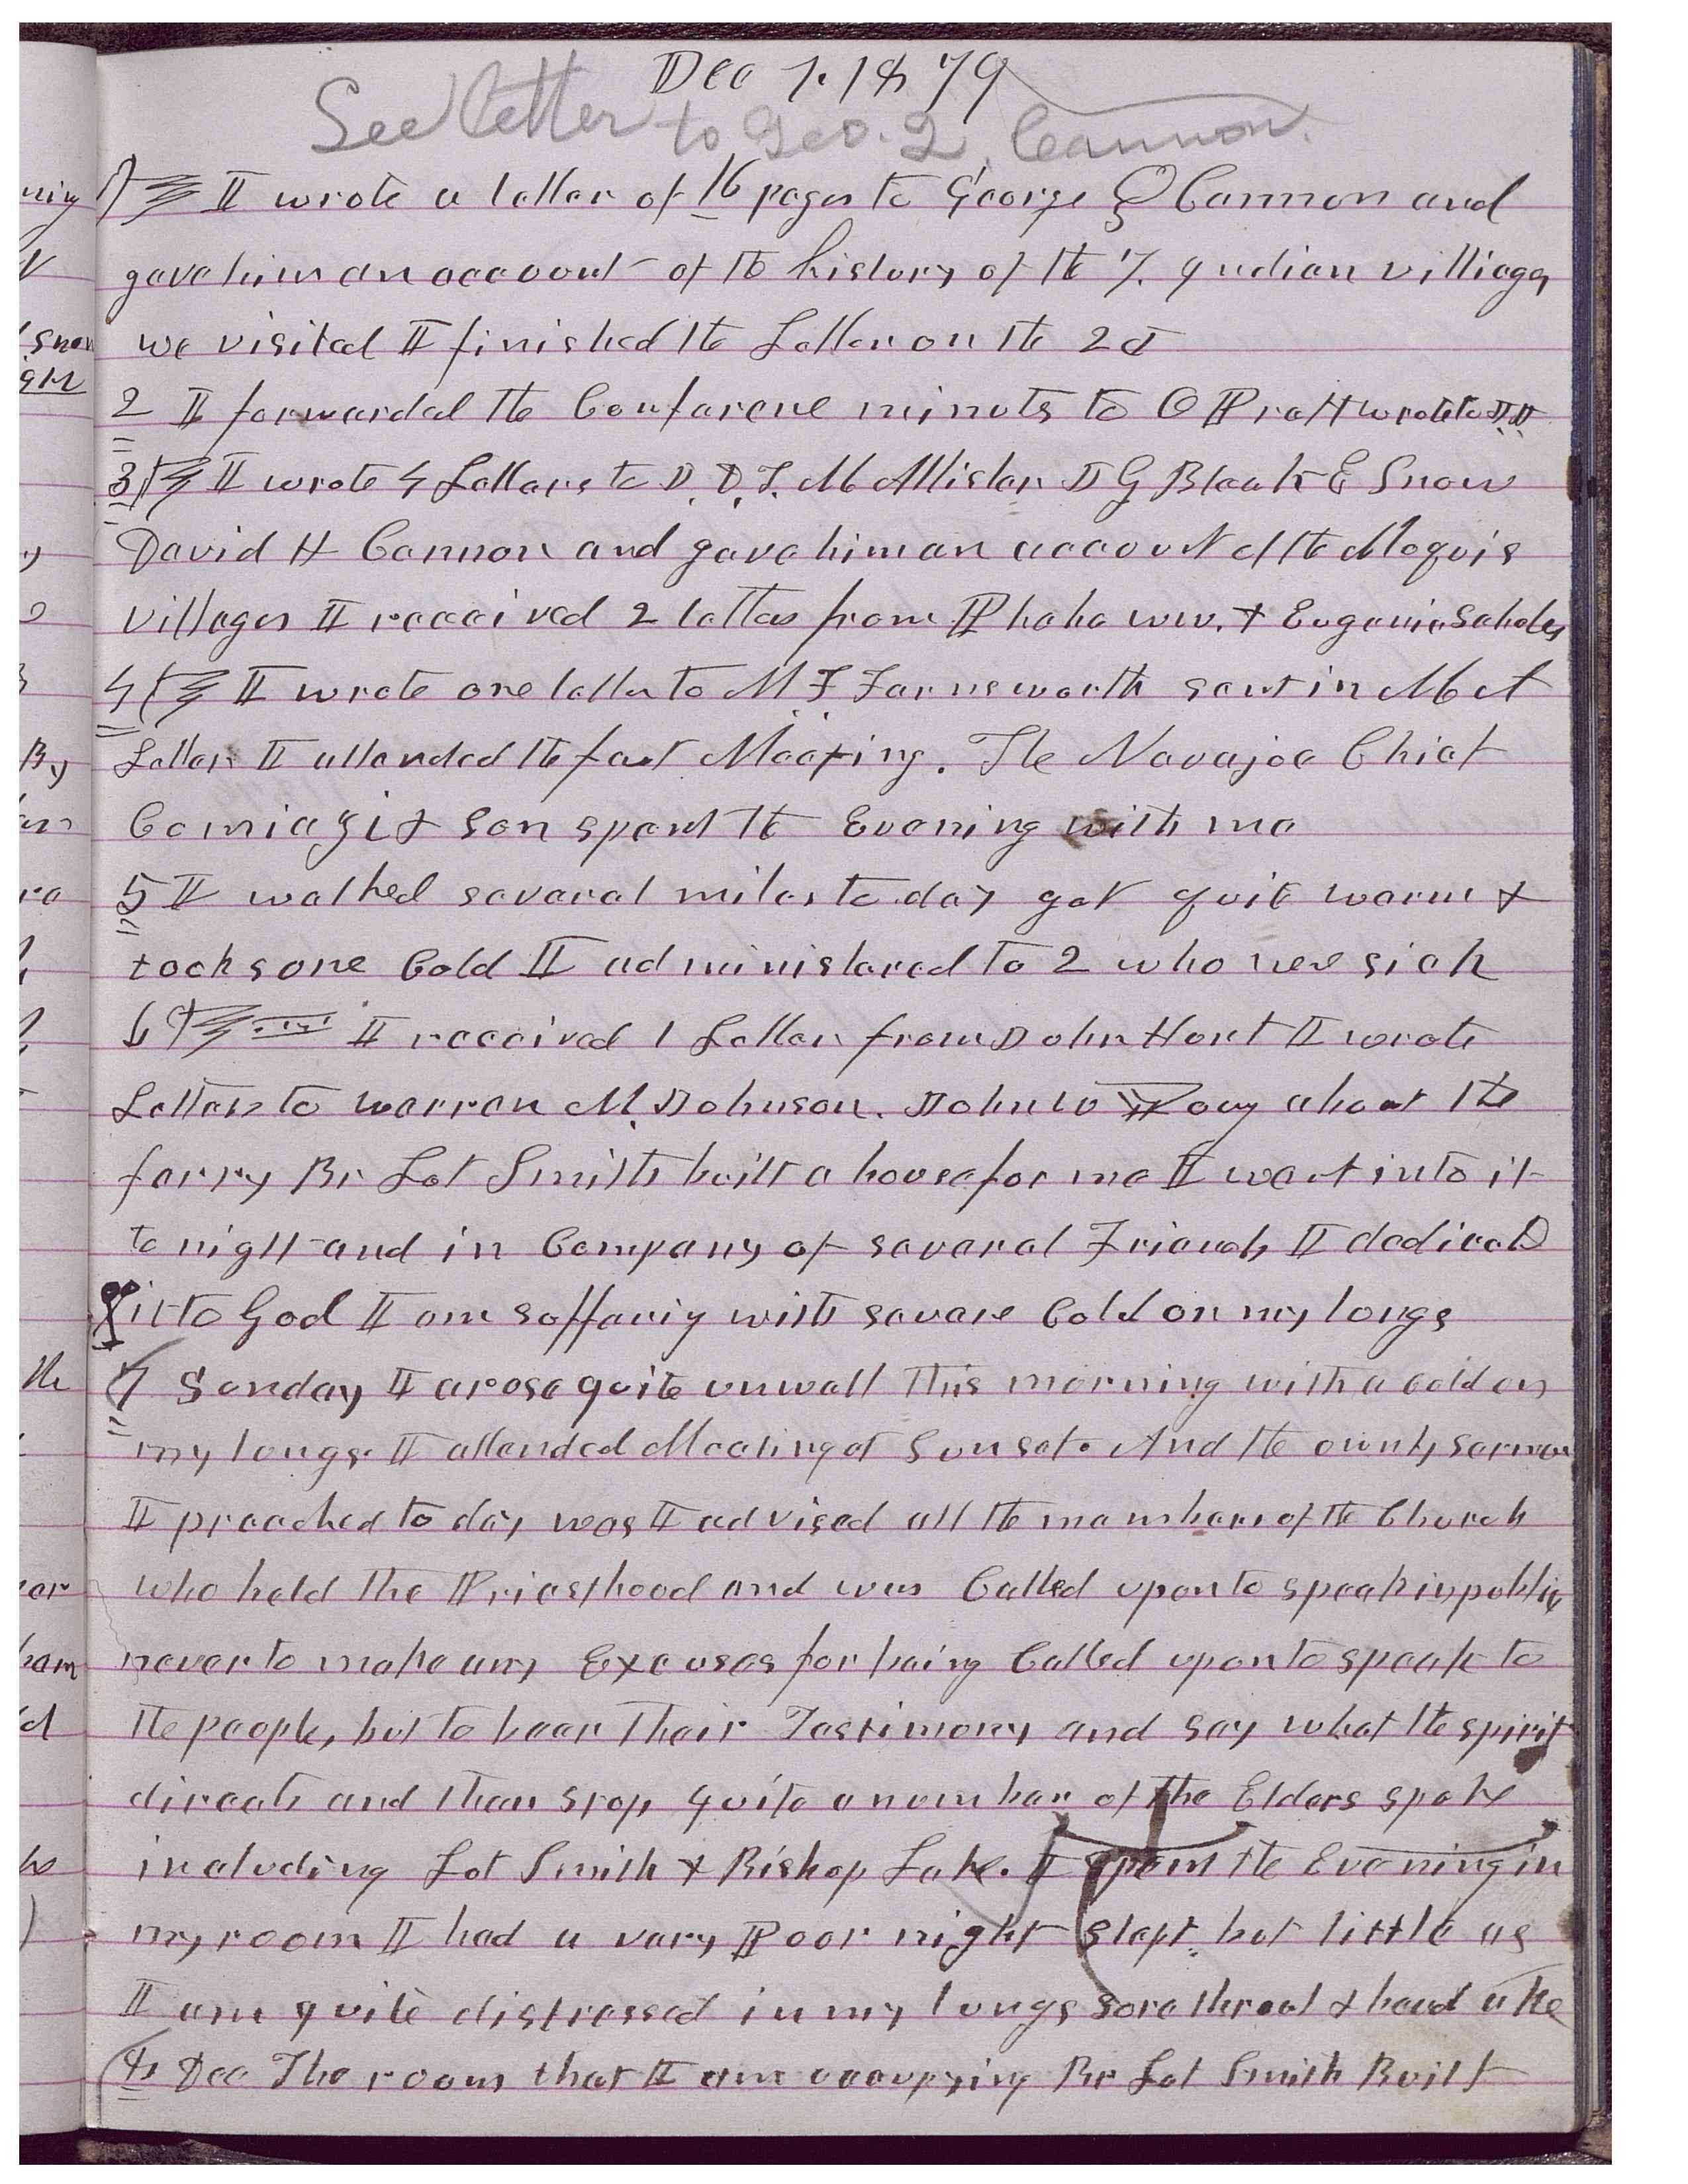 Dec 1. 1879
See letter to Geo. Q. Cannon.
1 I wrote a letter of 16 pages to George Q Cannon and
gave him an account of the history of the 7. Indian villiages
we visited I finished the Letter on the 2d
2 I forwarded the Conference minuts to O Pratt wrote to
3 I wrote 4 Letters to J. D. T. McAllister J G Bleak E Snow
David H Cannon and gave him an account of the Moquis
villages I received 2 letters from Phebe W W. & Eugenia
4 I wrote one letter to M F Farnsworth sent in
Letter I attended the fast Meeting. The Navajoe Chief
& son spent the Evening with me
5 I walked several miles to day got quite warm &
took some Cold I administered to 2 who were sick
6 I received 1 Letter from John Hunt I wrote
Letters to warren M. Johnson. John W Young about the
ferry Br Lot Smith built a house for me I went into it
to night and in Company of several Friends I dedicatd
it to God I am suffering with severe Cold on my lungs
7 Sunday I arose quite unwell This morning with a cold on
my lungs. I attended Meeting at Sunset. And the ownly sermon
I preached to day was I advised all the members of the Church
who held the Priesthood and was Called upon to speak in public
never to make any Excuses for being Called upon to speak to
the people, but to bear their Testimony and say what the spirit
directs and then stop quite a number of the Elders spoke
including Lot Smith & Bishop Lake. I spent the Evening in
my room I had a very Poor night slept but little as
I am quite distressed in my lungs sore throat & head ake
8 Dec The room that I am occupying Br Lot Smith Built